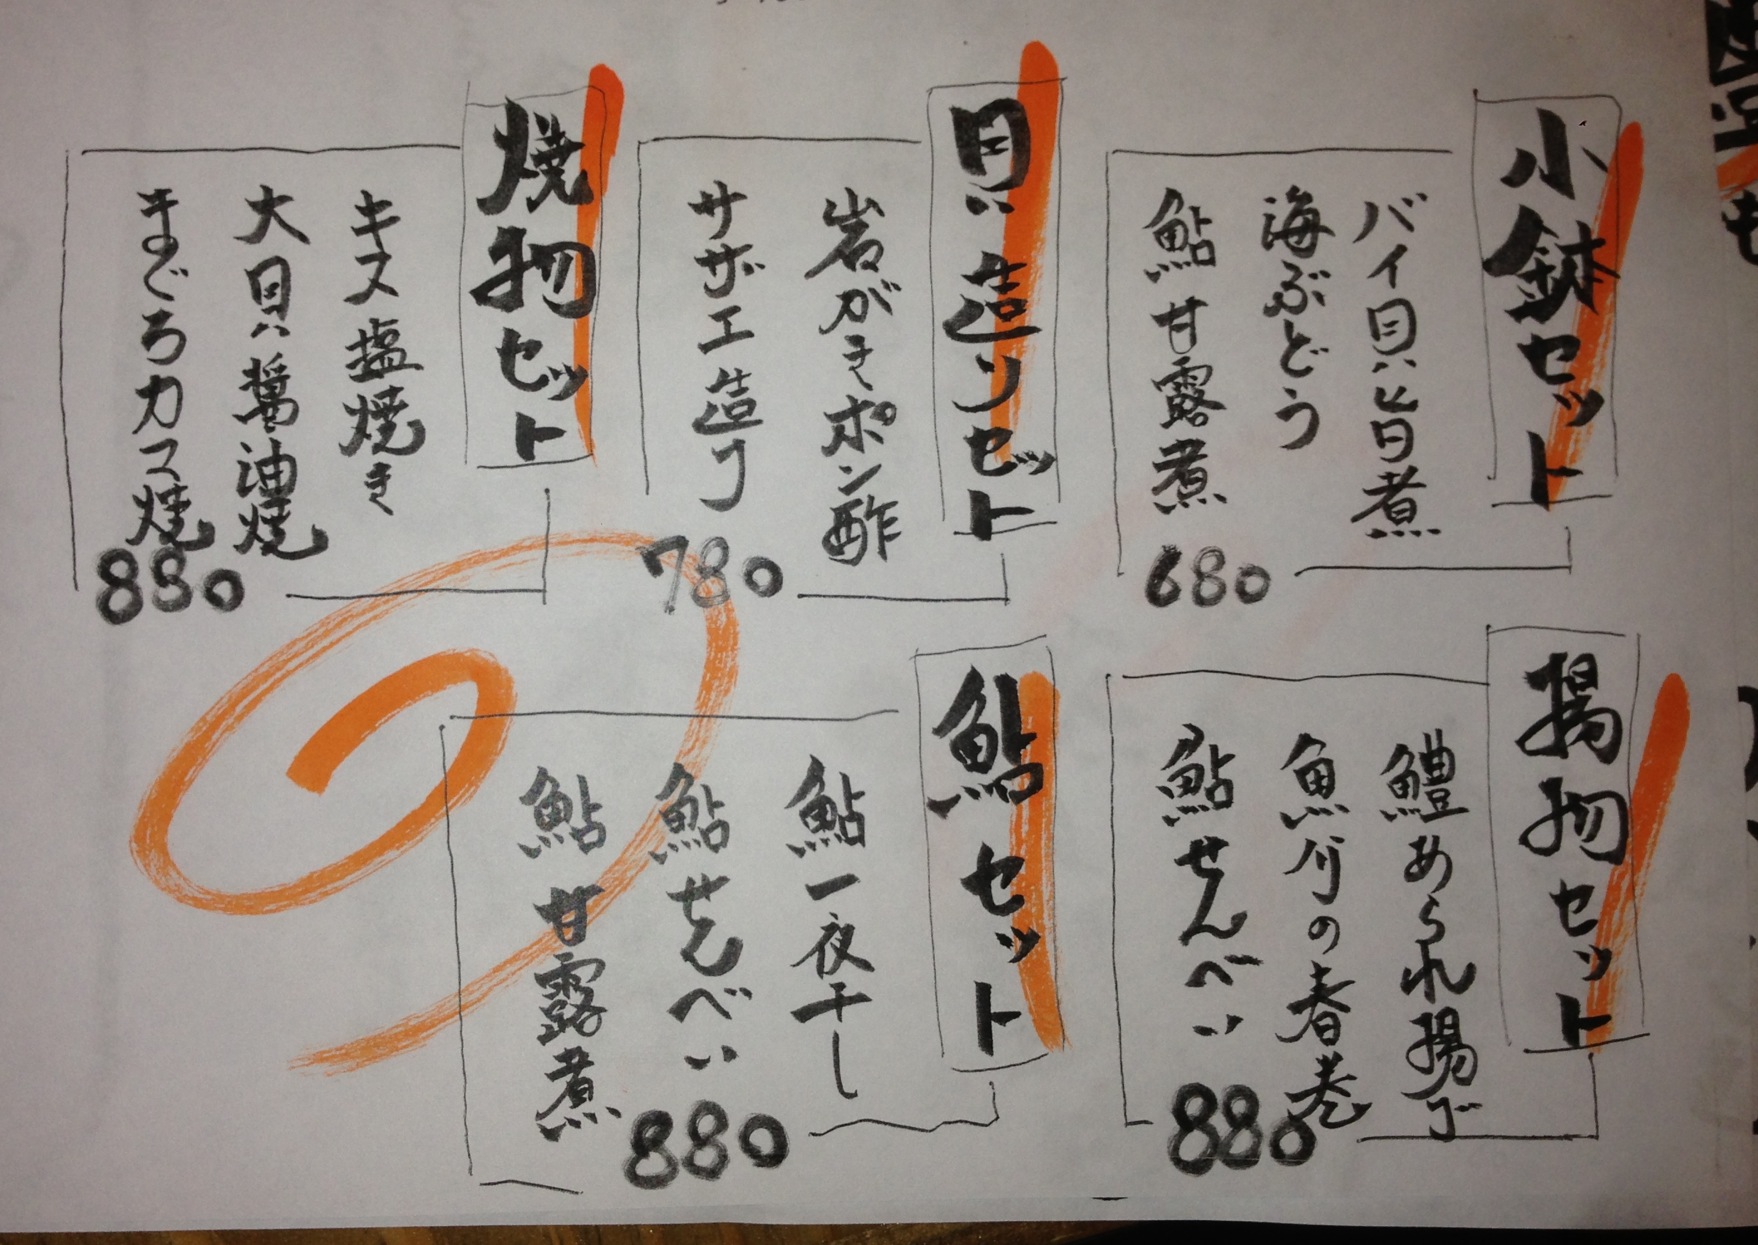 小鉢セット
バイ貝旨煮
海ぶどう
鮎甘露煮
680
貝造りセット
岩がきポン酢
サザエ造り
780
焼物セット
キス塩焼き
大貝醤油焼
まぐろカス焼
880
揚物セット
鱧あられ揚げ
魚介の春巻
鮎せんべい
880
鮎セット
鮎一夜干し
鮎せんべい
鮎甘露煮
880